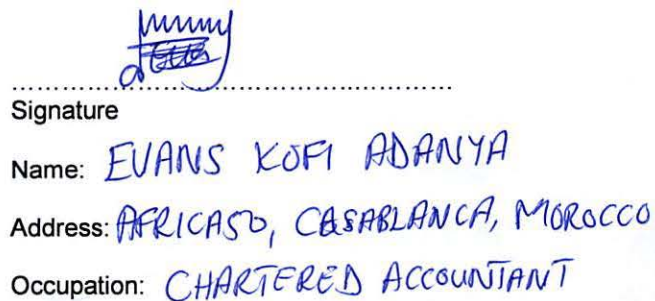 Signature
Name: EVANS KOFI ADANYA
Address: AFRICA50, CASABLANCA, MOROCCO
Occupation: CHARTERED ACCOUNTANT